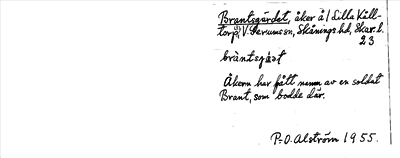 Brantsgärdet, åker å 1 Lilla Käll-
torp, V. Gerum sn, Skånings hd, Skar. l.
23
Åkern har fått namn av en soldat
Brant, som bodde där.
P-O. Alström 1955.